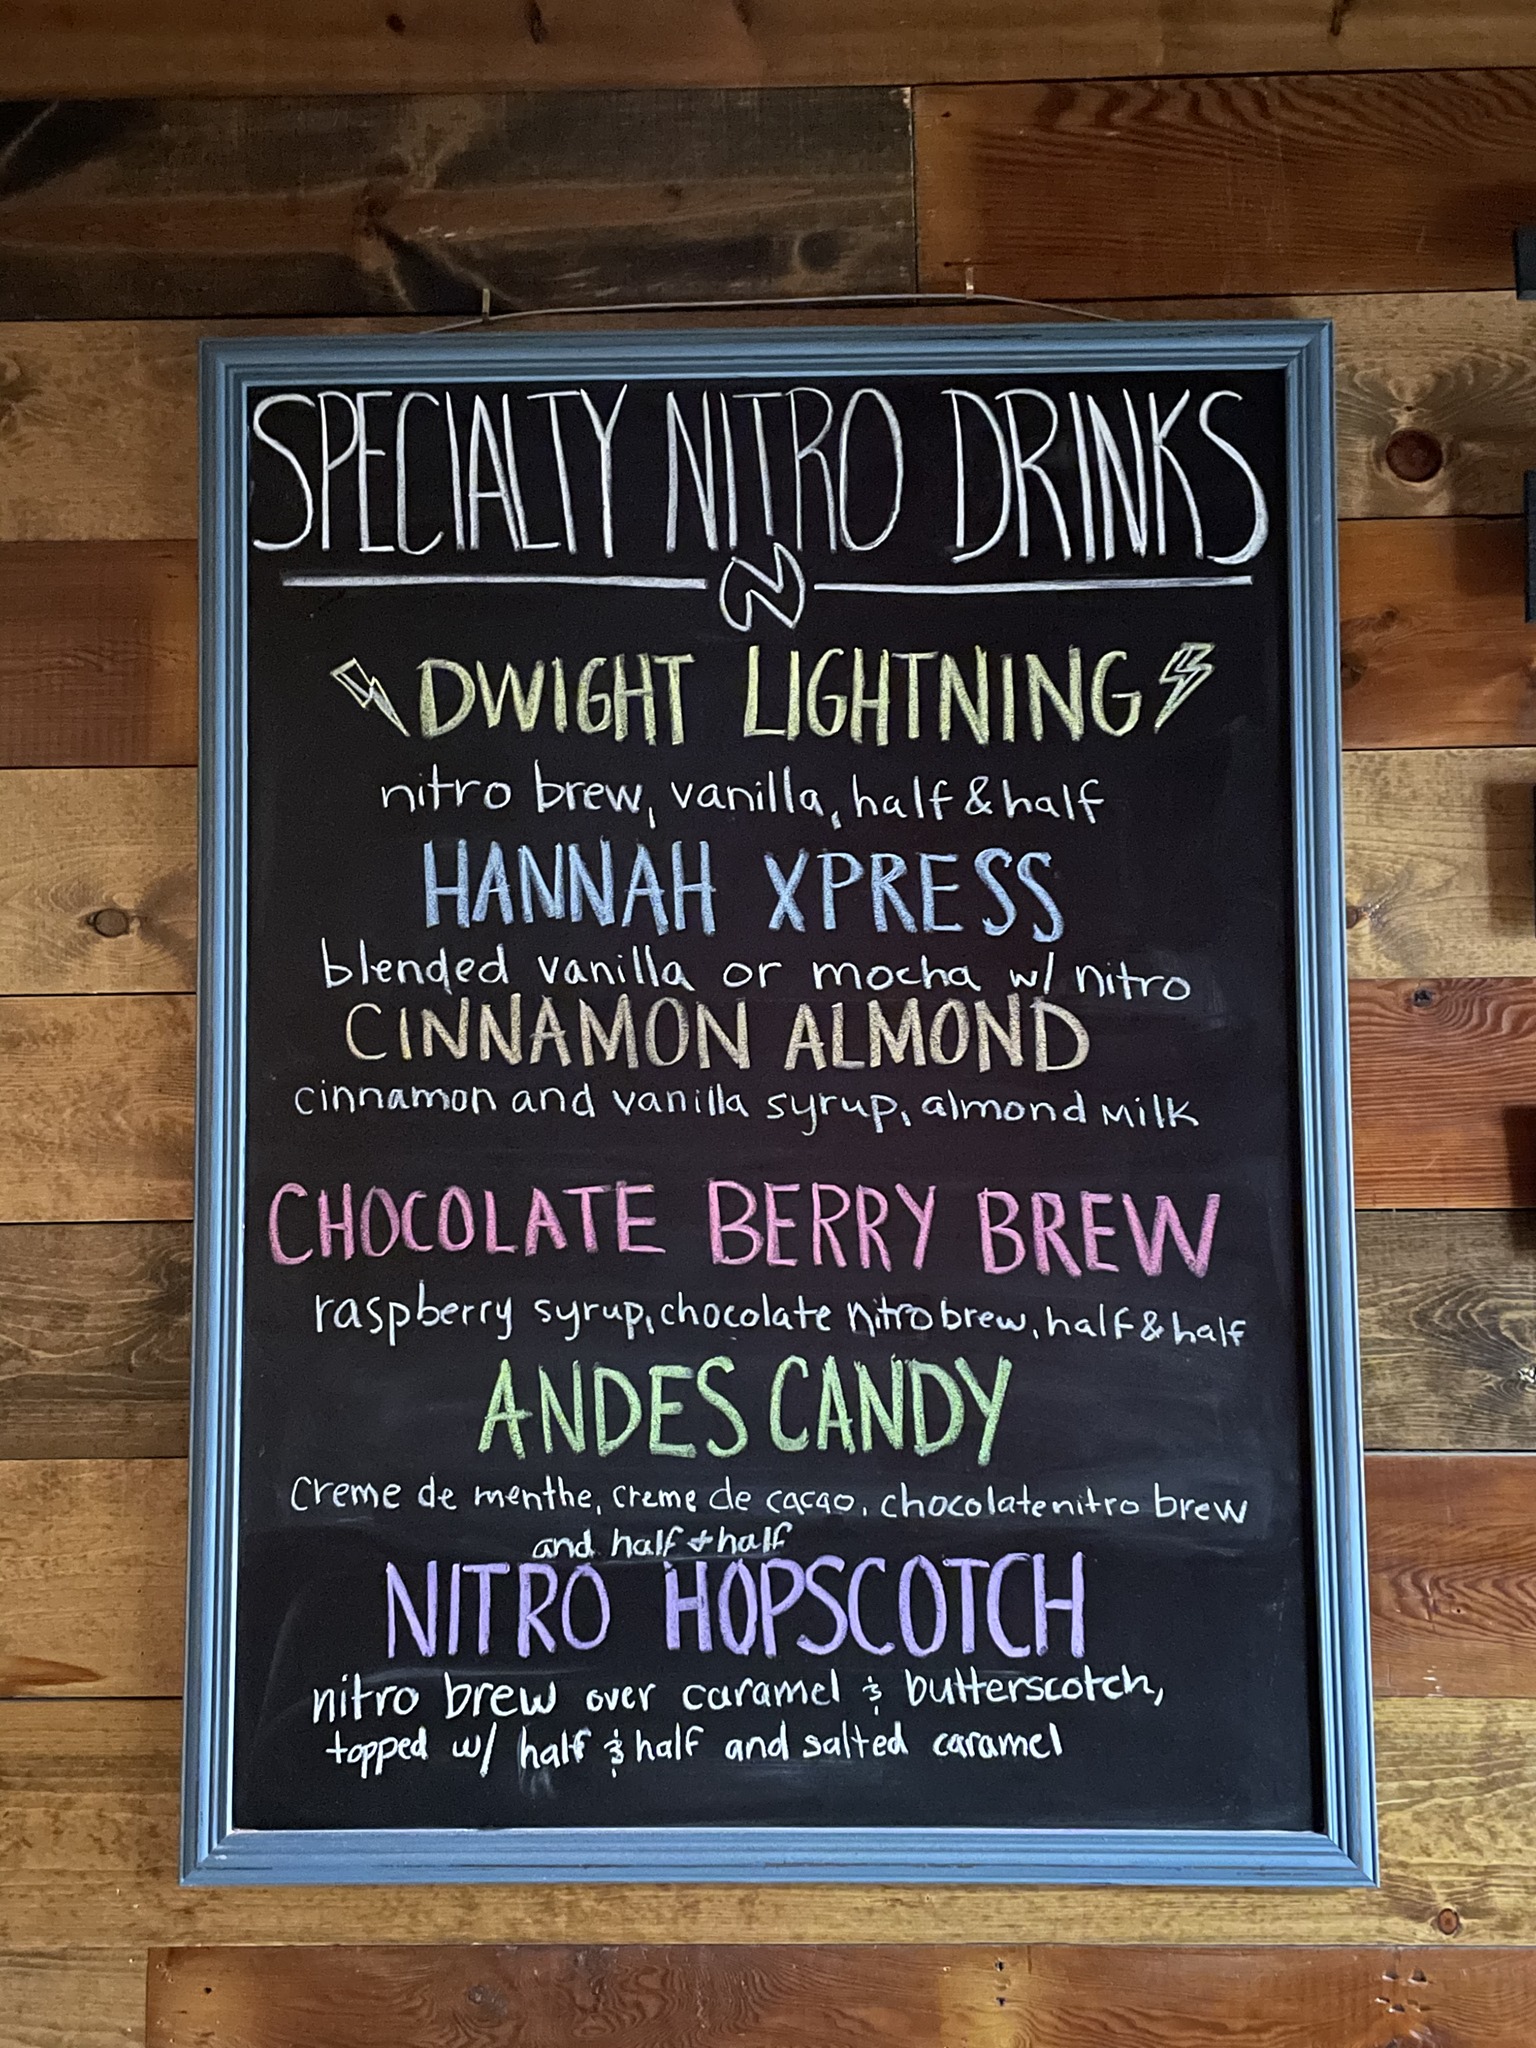 SPECIALTY NITRO DRINKS
N
DWIGHT LIGHTNING
nitro brew, vanilla, half & half
HANNAH XPRESS
blended vanilla or mocha w/ nitro
CINNAMON ALMOND
cinnamon and vanilla syrup, almond milk
CHOCOLATE BERRY BREW
raspberry syrup, chocolate nitro brew, half & half
ANDES CANDY
Creme de menthe, creme de cacao, chocolate nitro brew
and half + half
NITRO HOPSCOTCH
nitro brew over caramel & butterscotch,
topped w/ half & half and salted caramel